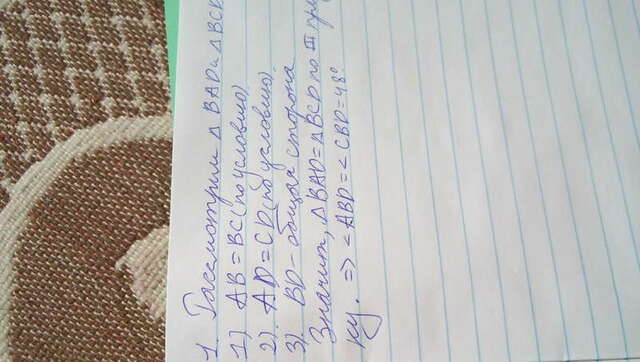 1. Рассмотрим △ BAD и △ BCD
1) AB = BC (по условию)
2). AD = CD (по условию)
3). BD - общая сторона
Значит, △BAD = △BCD по III при
ку. => ∠ABD = ∠CBD = 48°